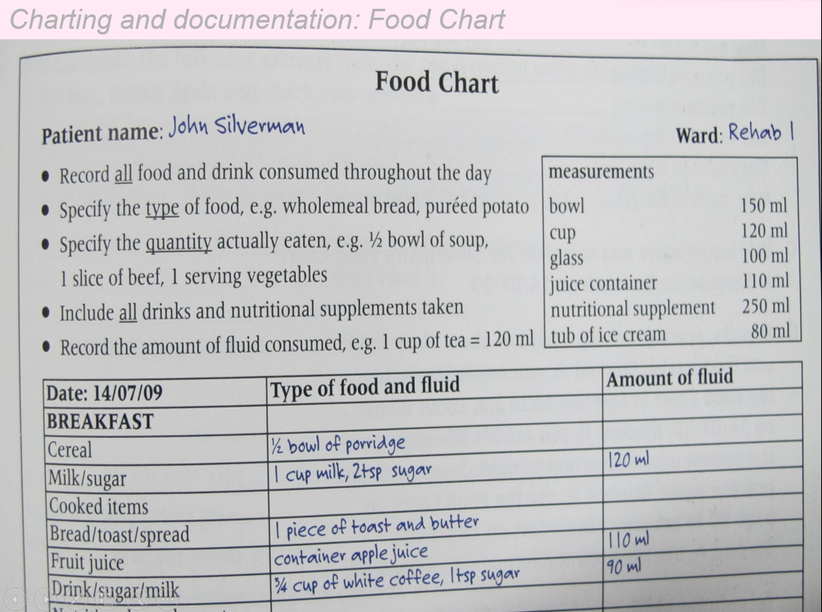 Charting and documentation: Food Chart
Food Chart
Patient name: John Silverman
Ward: Rehab 1
• Record all food and drink consumed throughout the day
• Specify the type of food, e.g. wholemeal bread, puréed potato
• Specify the quantity actually eaten, e.g. ½ bowl of soup,
1 slice of beef, 1 serving vegetables
• Include all drinks and nutritional supplements taken
• Record the amount of fluid consumed, e.g. 1 cup of tea = 120 ml
measurements
bowl 150 ml
cup 120 ml
glass 100 ml
juice container 110 ml
nutritional supplement 250 ml
tub of ice cream 80 ml
Date: 14/07/09 Type of food and fluid Amount of fluid
BREAKFAST
Cereal ½ bowl of porridge
Milk/sugar 1 cup milk, 2tsp sugar 120 ml
Cooked items
Bread/toast/spread 1 piece of toast and butter
Fruit juice container apple juice 110 ml
Drink/sugar/milk ¾ cup of white coffee, 1tsp sugar 90 ml